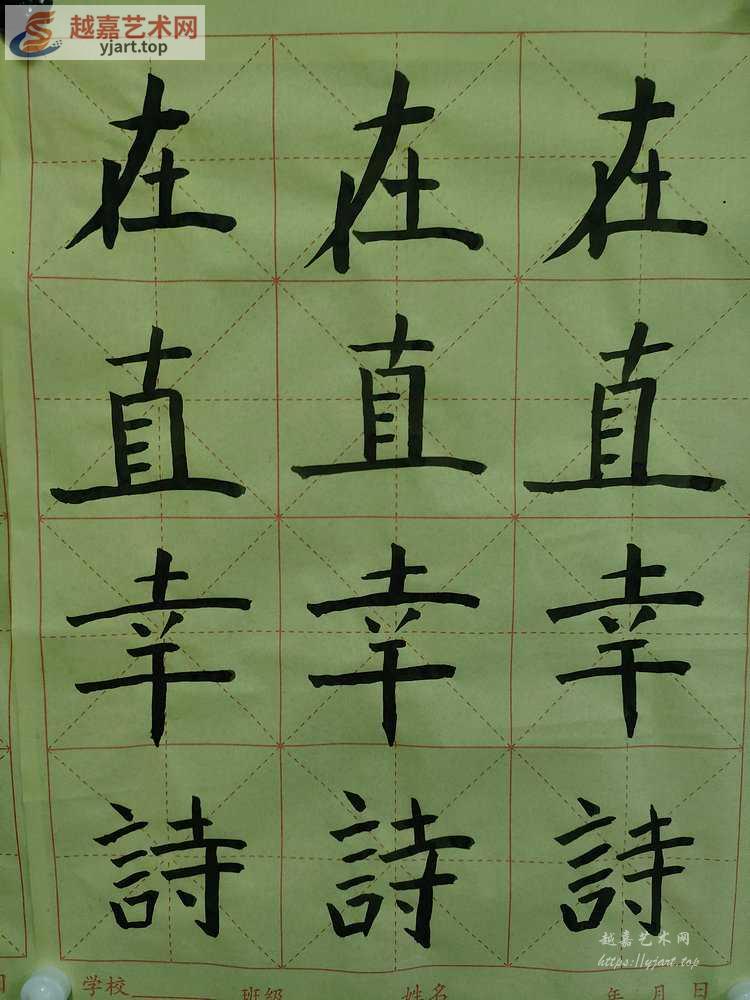 越嘉艺术网
yjart.top
在 在 在
直 直 直
幸 幸 幸
詩 詩 詩
越嘉艺术网
https://yjart.top
学校 班级 姓名 年 月 日